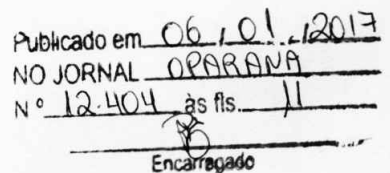 Publicado em 06 / 01 / 2017
NO JORNAL OPARANA
Nº 12.404 às fls. 11
Encarregado